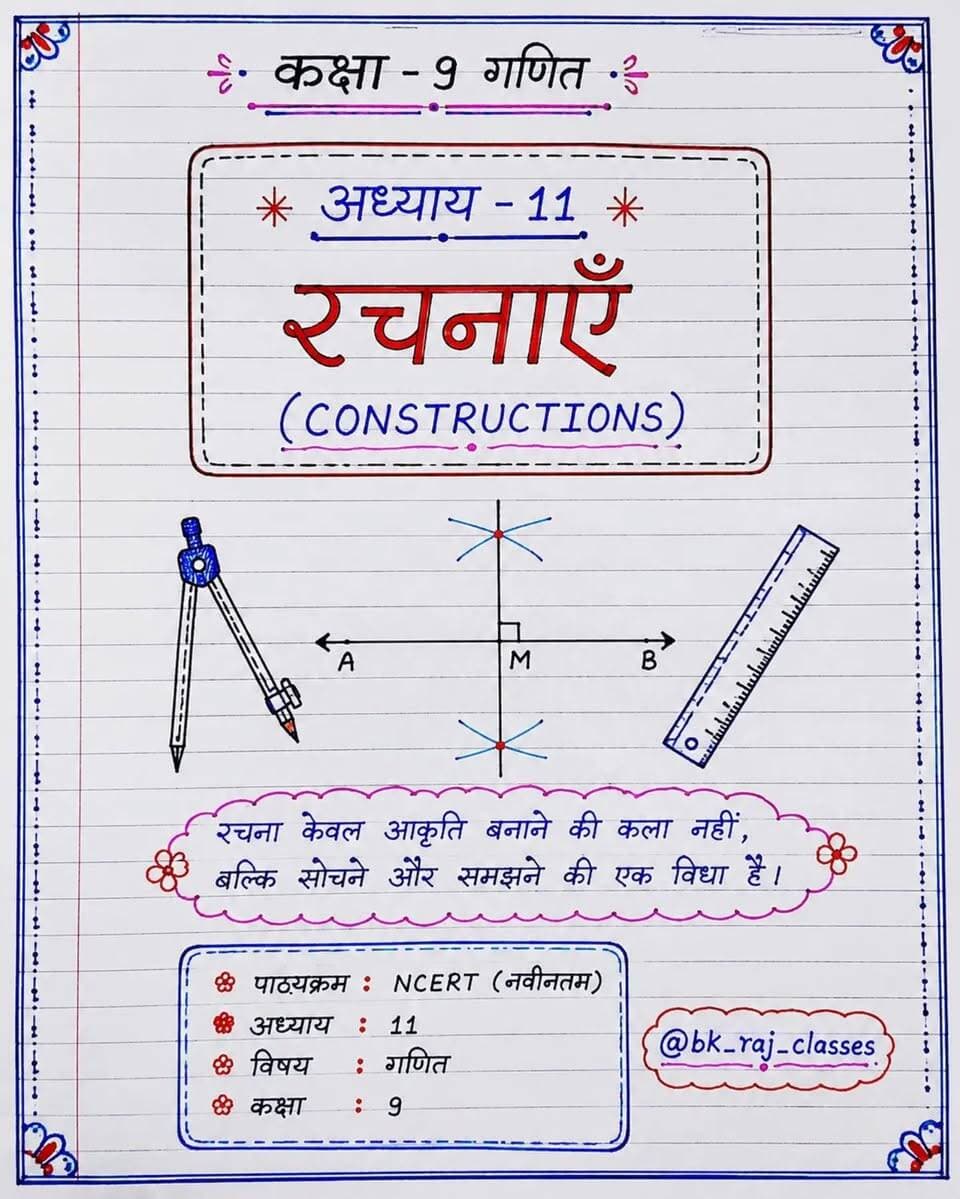 कक्षा - 9 गणित
अध्याय - 11
रचनाएँ
(CONSTRUCTIONS)
A M B
रचना केवल आकृति बनाने की कला नहीं,
बल्कि सोचने और समझने की एक विधा है।
पाठ्यक्रम : NCERT (नवीनतम)
अध्याय : 11
विषय : गणित
कक्षा : 9
@bk_raj_classes